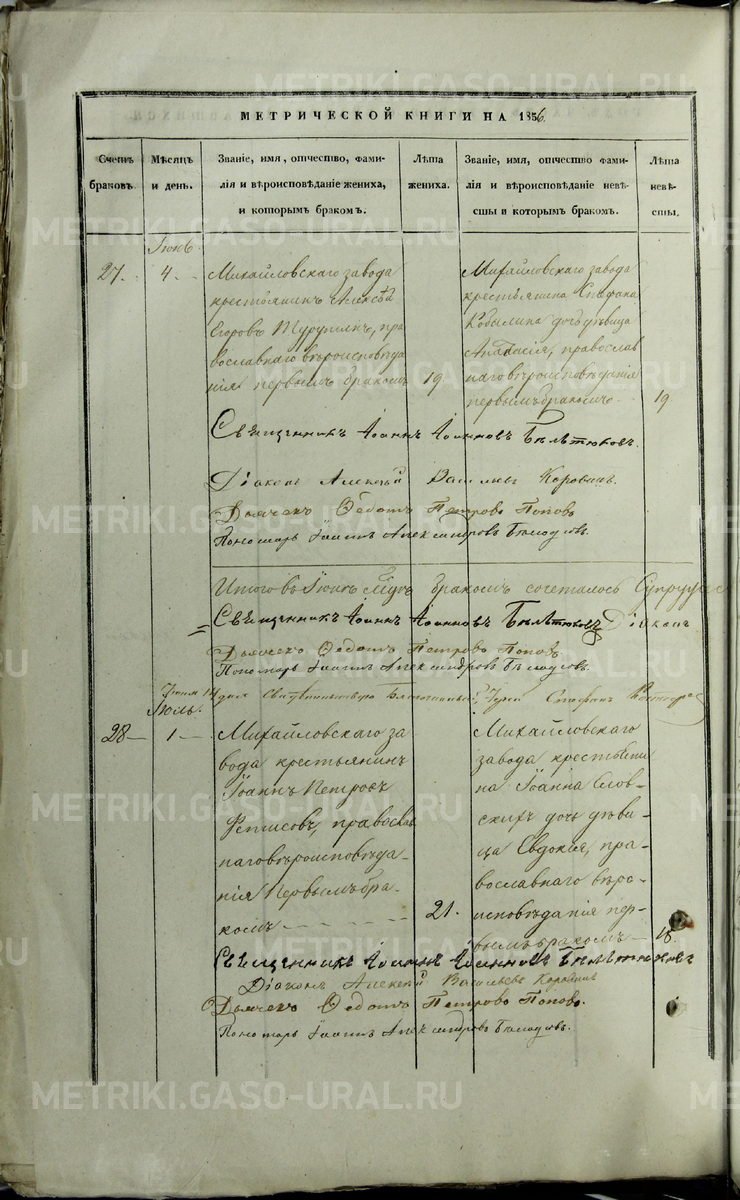 МЕТРИЧЕСКОЙ КНИГИ НА 1856
Счетъ браковъ.
Мѣсяцъ и день.
Званіе, имя, отчество, фами-
лія и вѣроисповѣданіе жениха,
и которымъ бракомъ.
Лѣта жениха.
Званіе, имя, отчество фами-
лія и вѣроисповѣданіе невѣ-
сты и которымъ бракомъ.
Лѣта невѣ-
сты.
Іюнь
27. 4.
Михайловскаго завода
крестьянинъ Алексѣй
Егоровъ пра
вославнаго вѣроисповѣда
нія первымъ бракомъ
19
Михайловскаго завода
крестьянина Стефана
Кобылина дочь дѣвица
православ
наго вѣроисповѣданія
первымъ бракомъ.
19
Священникъ Іоаннъ Іоанновъ
Діаконъ Алексѣй Васильевъ Коровинъ.
Дьячекъ Ѳедотъ Петровъ Поповъ
Пономарь Іоаннъ Александровъ
Итого въ Іюнѣ бракомъ сочеталось
Священникъ Іоаннъ Іоанновъ Діаконъ
Дьячекъ Ѳедотъ Петровъ Поповъ
Пономарь Іоаннъ Александровъ
Стефанъ
Іюль.
28 1
Михайловскаго за
вода крестьянинъ
Іоаннъ Петровъ
Фетисовъ, православ
наго вѣроисповѣда-
нія первымъ бра-
комъ
21.
Михайловскаго
завода крестьяни
на Іоанна Слов-
скихъ дочь дѣви-
ца Евдокія, пра-
вославнаго вѣро-
исповѣданія пер-
вымъ бракомъ
18.
Священникъ Іоаннъ Іоанновъ
Діаконъ Алексѣй Васильевъ Коровинъ
Дьячекъ Ѳедотъ Петровъ Поповъ.
Пономарь Іоаннъ Александровъ
METRIKI.GASO-URAL.RU